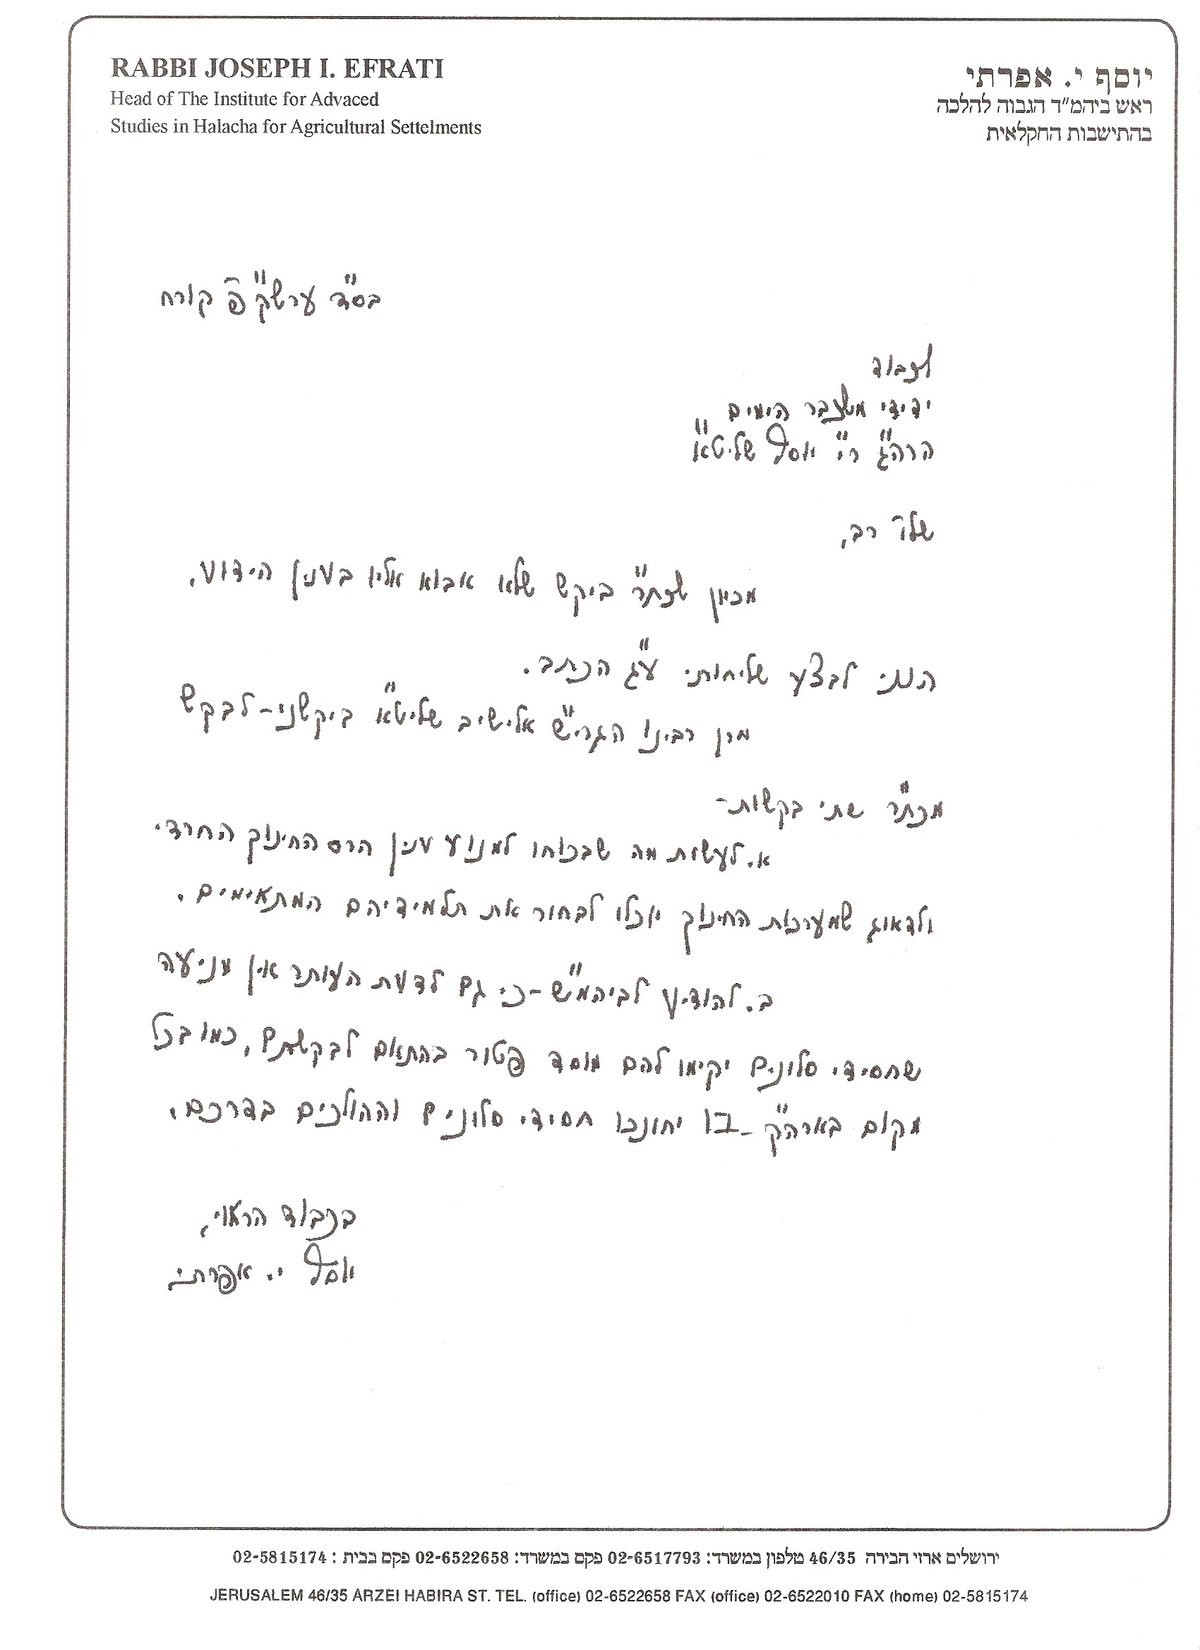 RABBI JOSEPH I. EFRATI
Head of The Institute for Advaced
Studies in Halacha for Agricultural Settelments
יוסף י. אפרתי
ראש ביהמ"ד הגבוה להלכה
בהתישבות החקלאית
בס"ד ערשק"פ קורח
לכבוד
ידידי משכבר הימים
הרה"ג ר"י יוסף שליט"א
שלו' רב,
מכיון שכת"ר ביקש שלא אבוא אליו בענין הידוע,
הנני לבצע שליחותי ע"ג הכתב.
מרן רבינו הגרי"ש אלישיב שליט"א ביקשני - לבקש
מכת"ר שתי בקשות -
א. לעשות מה שבכוחו למנוע ענין הרס החינוך החרדי
ולדאוג שמערכות החינוך יוכלו לבחור את תלמידיהם המתאימים.
ב. להודיע לביהמ"ש - כי גם לדעת העותר אין מניעה
שחסידי סלונים יקימו להם מוסד פטור בהתאם לבקשתם, כמו בכל
מקום בארה"ק - בו יחונכו חסידי סלונים וההולכים בדרכם.
בכבוד הראוי,
יוסף י. אפרתי
ירושלים ארזי הבירה 46/35 טלפון במשרד: 02-6517793 פקס במשרד: 02-6522658 פקס בבית : 02-5815174
JERUSALEM 46/35 ARZEI HABIRA ST. TEL. (office) 02-6522658 FAX (office) 02-6522010 FAX (home) 02-5815174